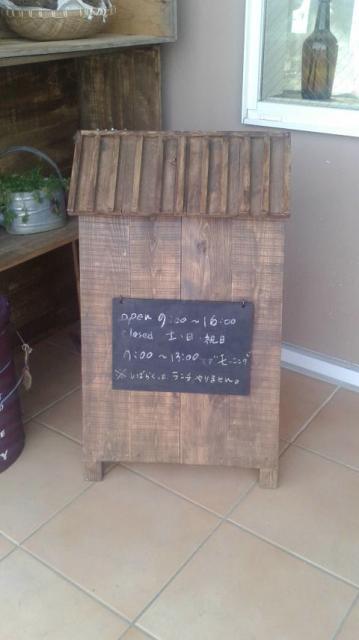 open 9:00～16:00
closed 土・日・祝日
9:00～13:00 まで"モーニング"
※しばらくは ランチ やりません。